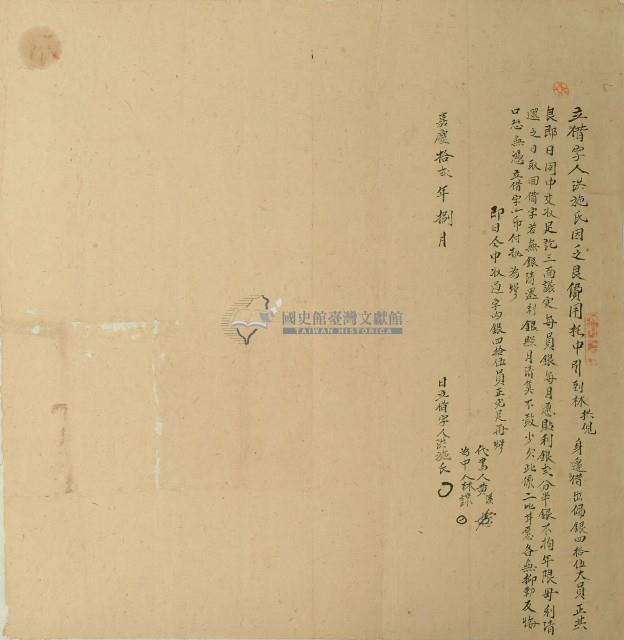 立借字人洪施氏因乏艮費用托中引到林拱觀身邊借出佛銀四拾伍大員正共
艮即日同中交收足訖三面議定每員銀每月愿貼利銀弍分半銀不拘年限母利清
還之日取回借字若無銀清還利銀照月清算不敢少欠此係二比甘愿各無抑勒反悔
口恐無憑立借字一帋付执為炤
即日仝中收過字內銀四拾伍員正完足再炤
代書人黃
為中人林謀
嘉慶拾弍年捌月 日立借字人洪施氏
國史館臺灣文獻館
TAIWAN HISTORICA